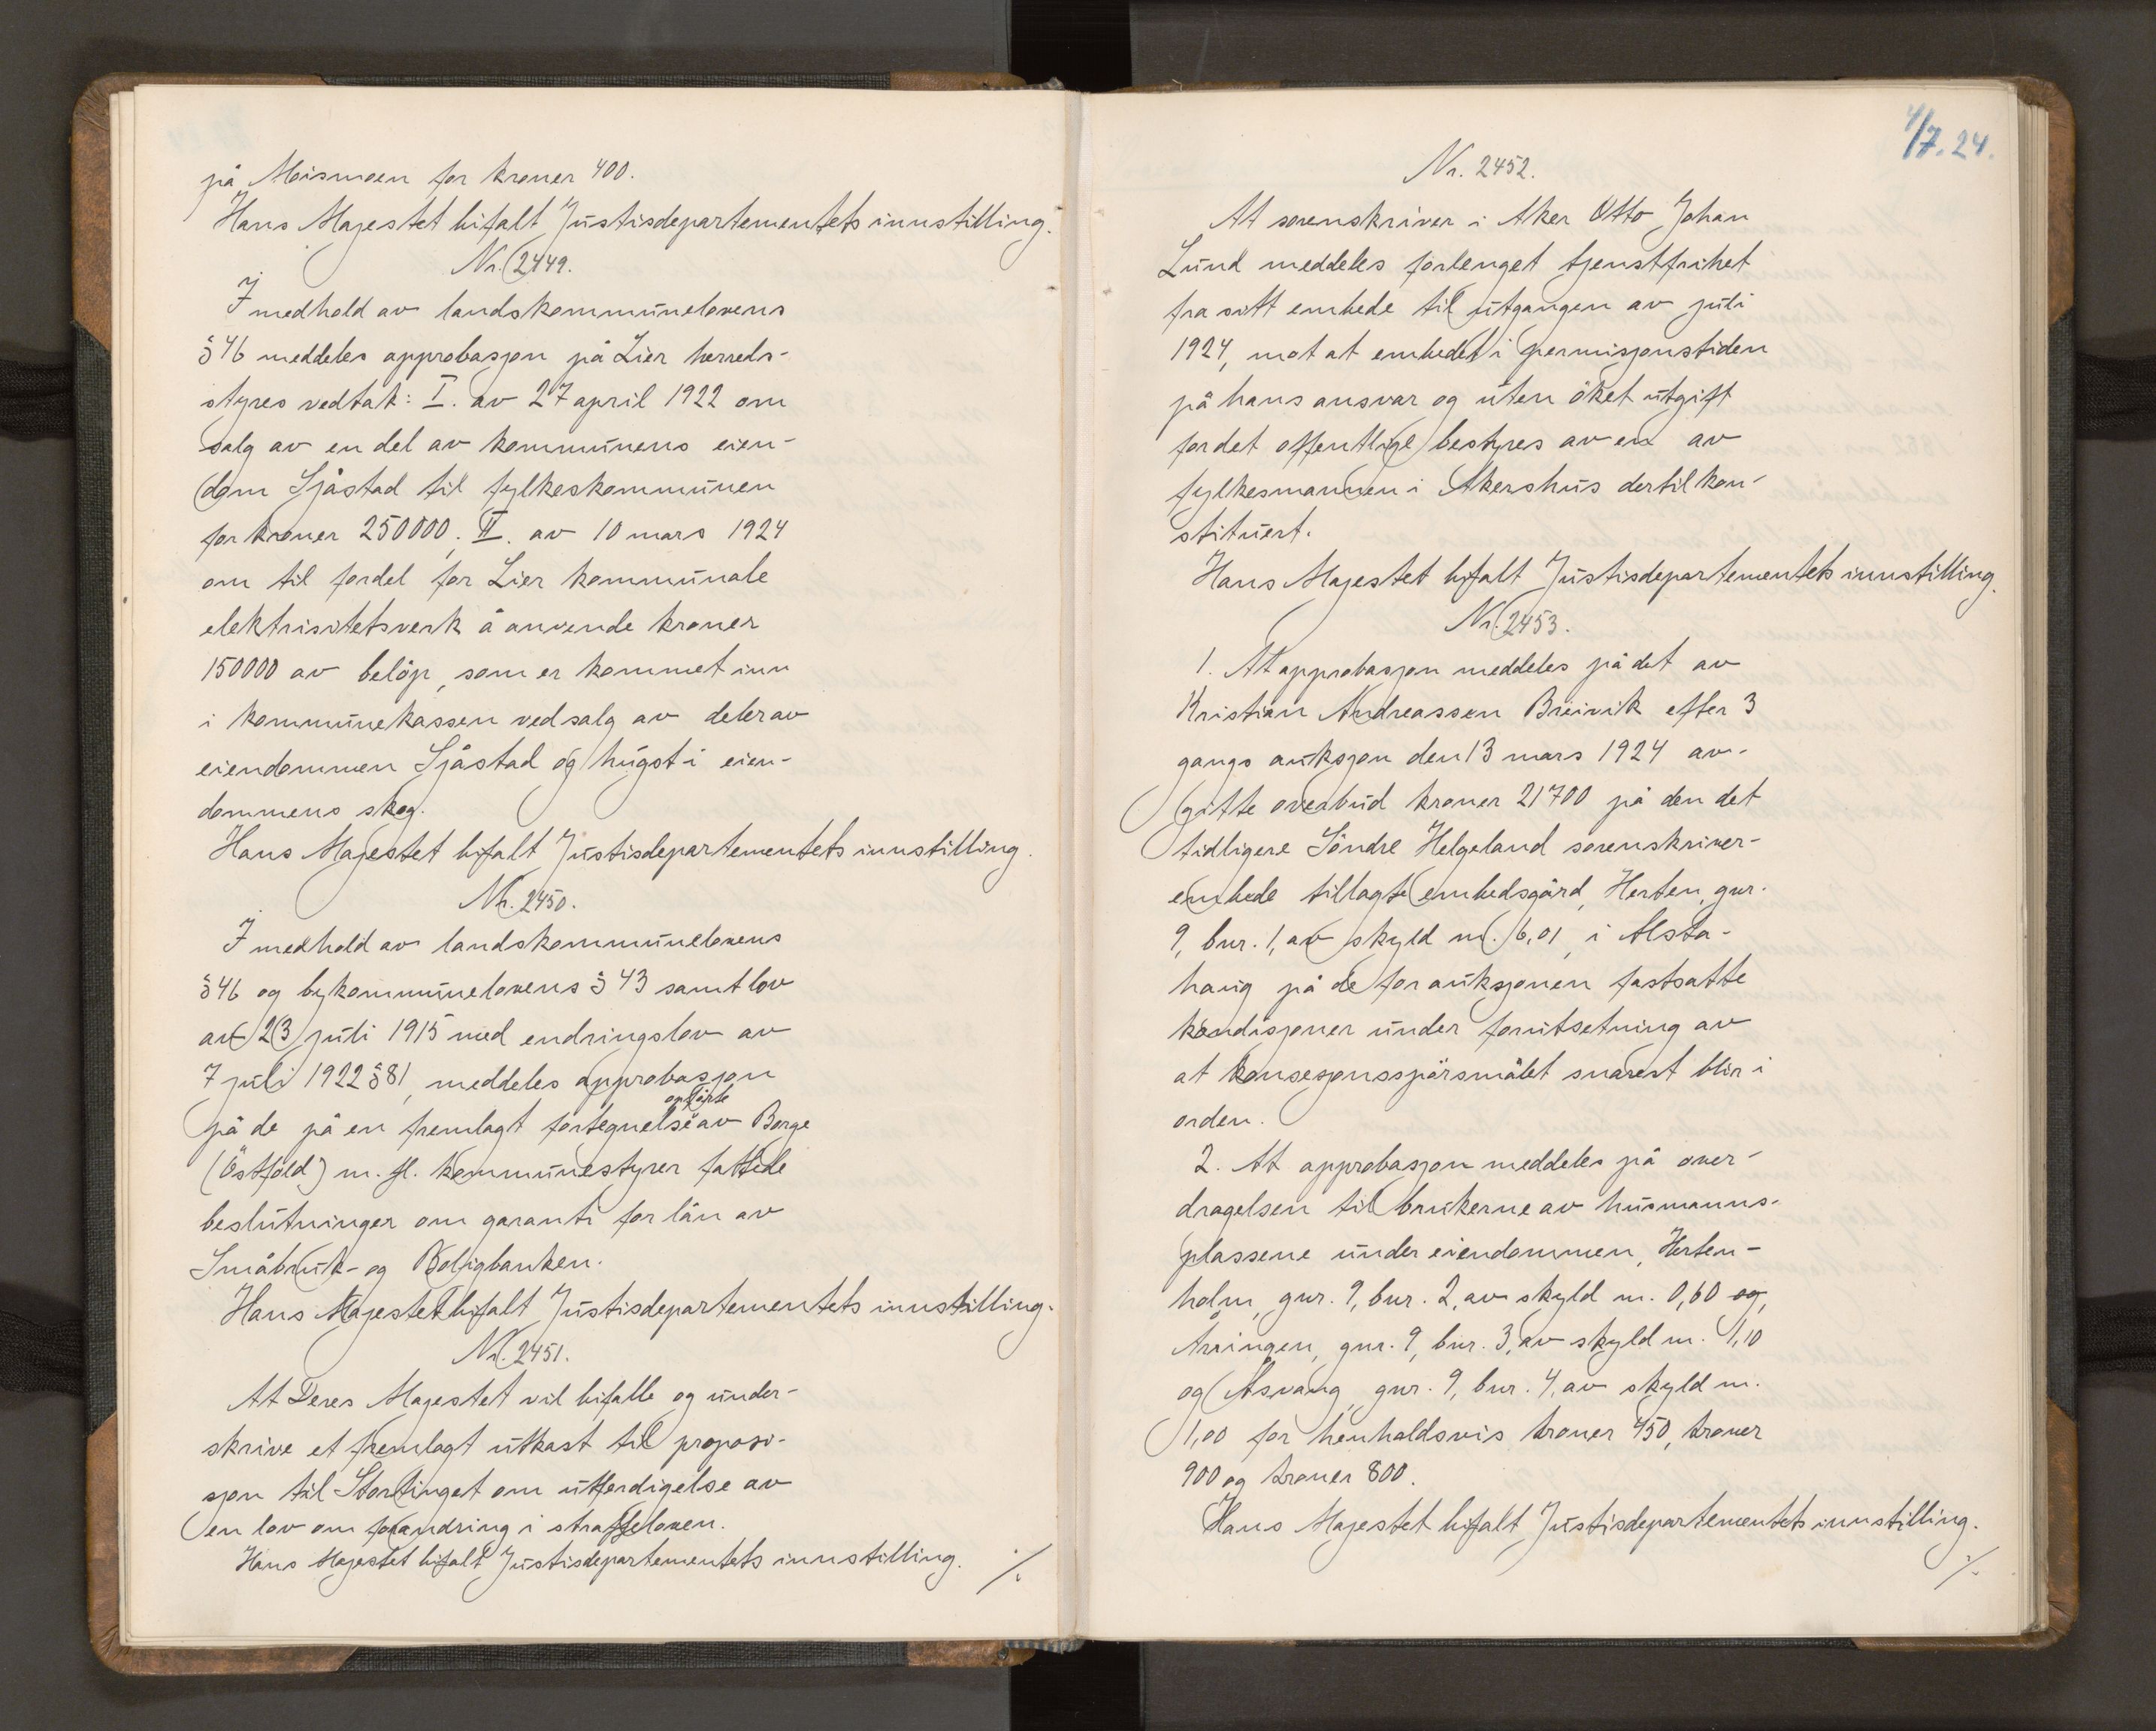 på Moismoen for kroner 400.
Hans Majestet bifalt Justisdepartementets innstilling.
Nr. 2449.
I medhold av landskommunelovens
§ 46 meddeles approbasjon på Lier herreds-
styres vedtak: I. av 27 april 1922 om
salg av en del av kommunens eien-
dom Sjåstad til fylkeskommunen
for kroner 250000; II. av 10 mars 1924
om til fordel for Lier kommunale
elektrisitetsverk å anvende kroner
150000 av beløp, som er kommet inn
i kommunekassen ved salg av deler av
eiendommen Sjåstad og hugst i eien-
dommens skog.
Hans Majestet bifalt Justisdepartementets innstilling.
Nr. 2450.
I medhold av landskommunelovens
§ 46 og bykommunelovens § 43 samt lov
av 23 juli 1915 med endringslov av
7 juli 1922 § 81, meddeles approbasjon
opførte
på de på en fremlagt fortegnelse av Borge
(Östfold) m. fl. kommunestyrer fattede
beslutninger om garanti for lån av
Småbruk- og Boligbanken.
Hans Majestet bifalt Justisdepartementets innstilling.
Nr. 2451.
At Deres Majestet vil bifalle og under-
skrive et fremlagt utkast til proposi-
sjon til Stortinget om utferdigelse av
en lov om forandring i straffeloven.
Hans Majestet bifalt Justisdepartementets innstilling.
./.
4/7.24.
Nr. 2452.
At sorenskriver i Aker Otto Johan
Lund meddeles forlenget tjenstfrihet
fra sitt embede til utgangen av juli
1924, mot at embedet i permisjonstiden
på hans ansvar og uten öket utgift
for det offentlige bestyres av en av
fylkesmannen i Akershus dertil kon-
stituert.
Hans Majestet bifalt Justisdepartementets innstilling.
Nr. 2453.
1. At approbasjon meddeles på det av
Kristian Andreassen Breivik efter 3
gangs auksjon den 13 mars 1924 av-
gitte overbud kroner 21700 på den det
tidligere Söndre Helgeland sorenskriver-
embede tillagte embedsgård, Herten, gnr.
9, bnr. 1, av skyld m. 6,01, i Alsta-
haug på de for auksjonen fastsatte
kondisjoner under forutsetning av
at konsesjonsspörsmålet snarest blir i
orden.
2. At approbasjon meddeles på over-
dragelsen til brukerne av husmanns-
plassene under eiendommen, Herten-
holm, gnr. 9, bnr. 2, av skyld m. 0,60 og,
Arringen, gnr. 9, bnr. 3, av skyld m. 1,10
og Åsvang, gnr. 9, bnr. 4, av skyld m.
1,00 for henholdsvis kroner 450, kroner
900 og kroner 800.
Hans Majestet bifalt Justisdepartementets innstilling.
./.